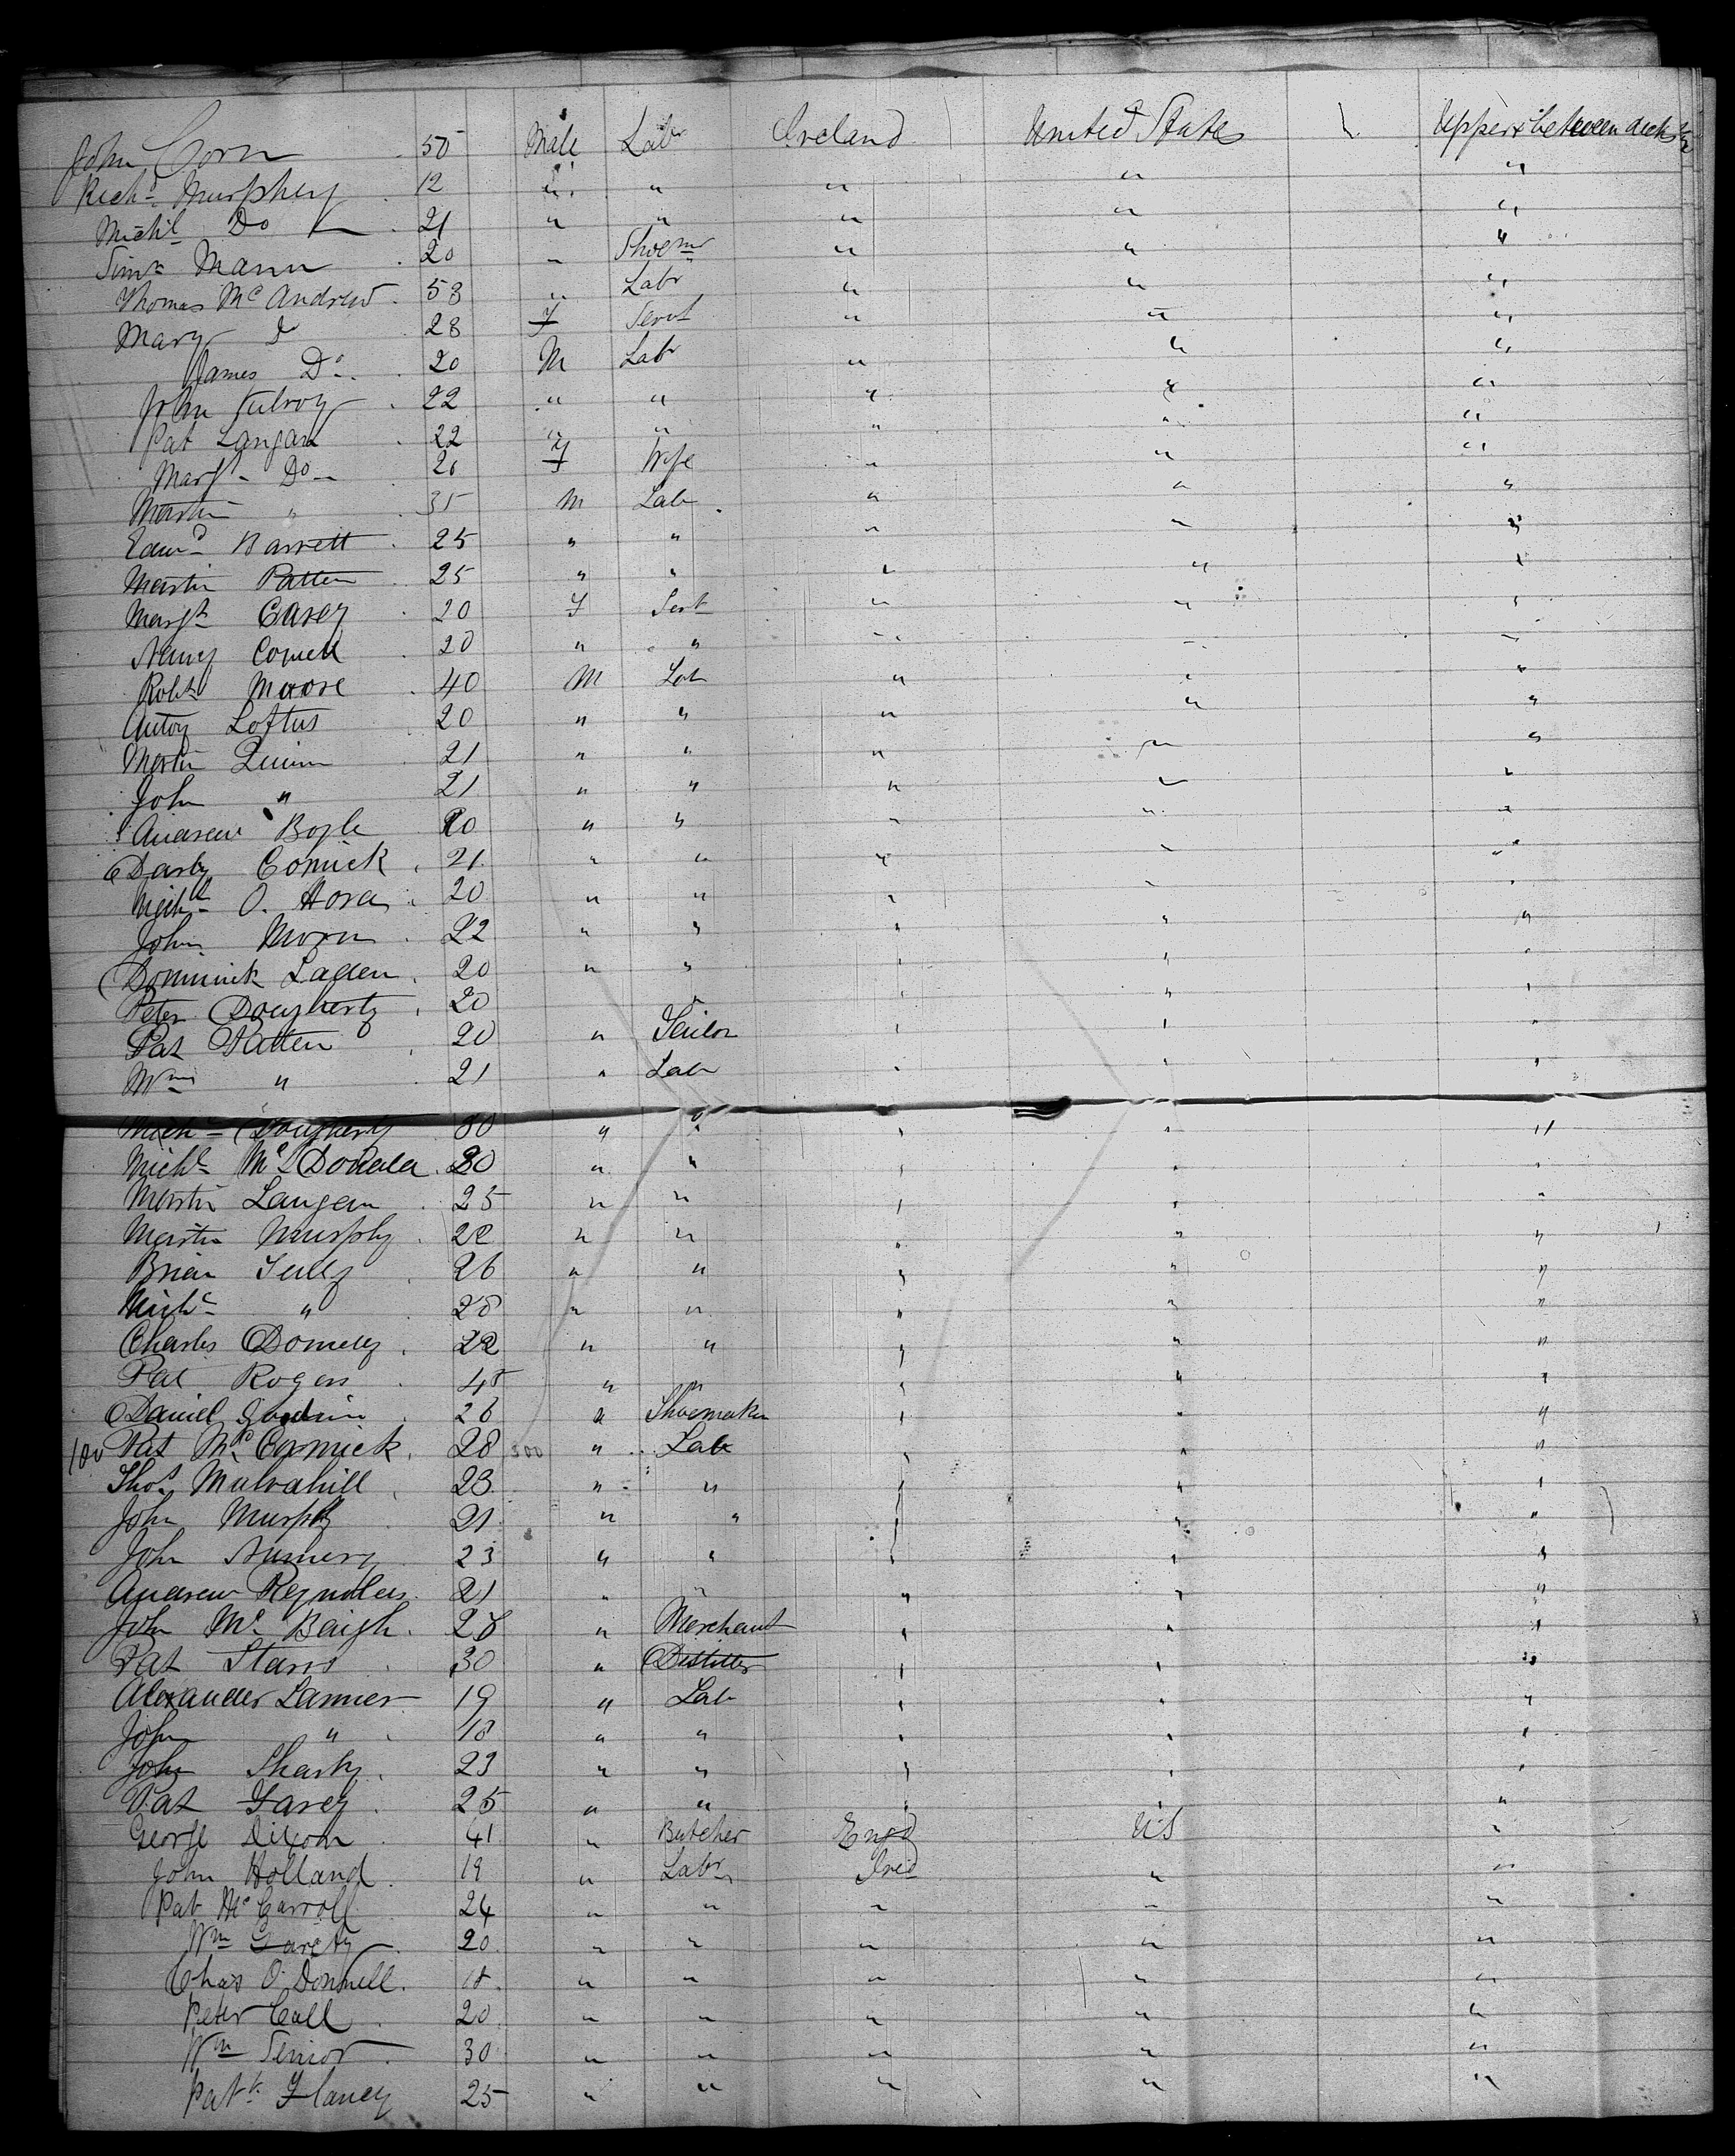 John Corn 50 Male Labr Ireland United States \ Upper & between decks
Richd Murphey 12 " " " " "
Michl Do 21 " " " " "
Simn Mann 20 " Shoemr " " "
Thomas Mc Andrew 58 " Labr " " "
Mary D 28 F Servt " " "
James Do 20 M Labr " " "
John Kilroy 22 " " " " "
Pat Langan 22 " " " " "
Margt Do 20 F Wife " " "
Martin " 35 M Lab " " "
Edwd Barrett 25 " " " " "
Martin Patten 25 " " " " "
Margt Carey 20 F Sert " " "
Nancy 20 " " " " "
Robt Moore 40 M Lab " " "
Antoy Loftus 20 " " " " "
Martin Quinn 21 " " " " "
John " 21 " " " " "
Andrew Boyle 20 " " " " "
Darby Comick 21 " " " " "
Michl O. Hora 20 " " " " "
John Moran 22 " " " " "
Dominick Laden 20 " " " " "
Peter Dougherty 20 " " " "
Pat Patten 20 " Tailor " " "
Wm " 21 " Lab " " "
Michl Dougherty 30 " " " " "
Michl Mc Donald 20 " " " " "
Martin Langan 25 " " " " "
Martin Murphy 22 " " " " "
Brian Tully 26 " " " " "
Michl " 28 " " " " "
Charles Donnelly 22 " " " " "
Pat Rogers 45 " " " " "
Daniel 26 " Shoemaker " " "
100 Pat Mc Cormick 28 300 " Lab " " "
Thos Mulvahill 23 " " " " "
John Murphy 21 " " " " "
John 23 " " " " "
Andrew Reynolds 21 " " " " "
John Mc Baigh 28 " Merchant " " "
Pat 30 " Distiller " " "
Alexander Lanner 19 " Lab " " "
John " 18 " " " " "
John Sharky 23 " " " " "
Pat Favey 25 " " " " "
George Dixon 41 " Butcher Engd US "
John Holland 19 " Labr Ired " "
Pat Mc Carroll 24 " " " " "
Wm Garety 20 " " " " "
Chas O. Donnell 18 " " " " "
Peter Call 20 " " " " "
Wm Senior 30 " " " " "
Patk Flancy 25 " " " " "